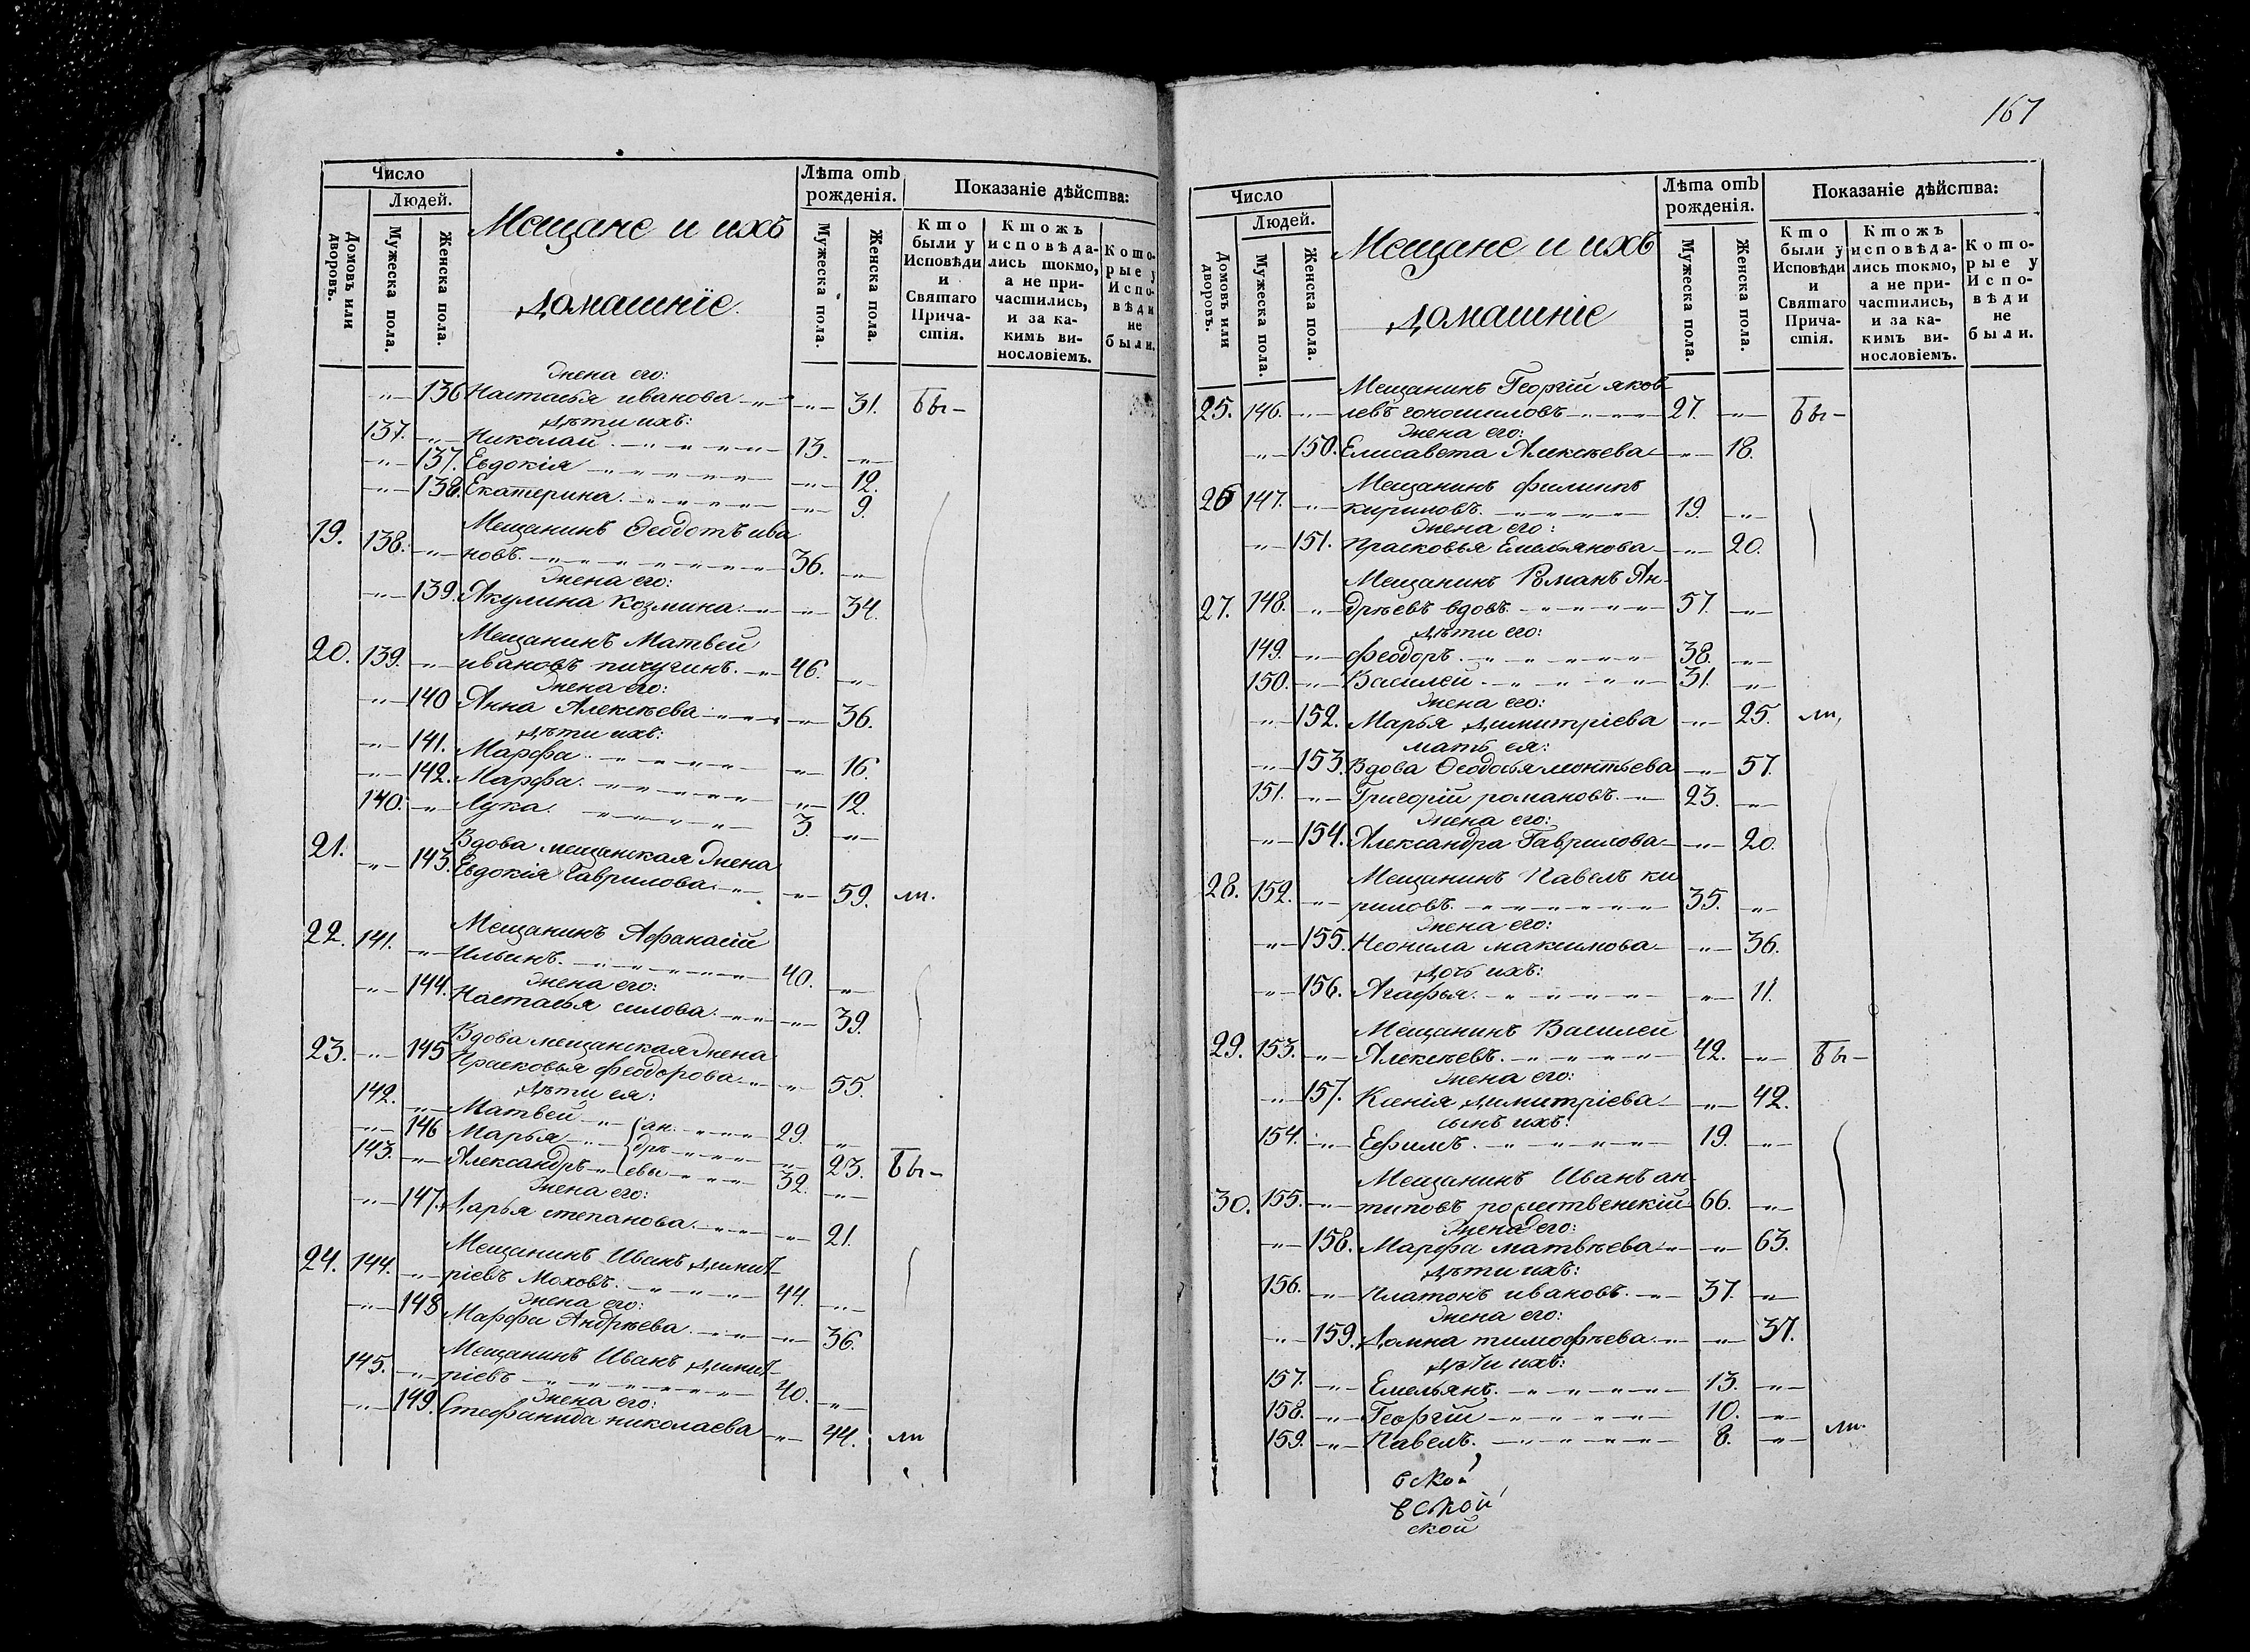 Число
Людей.
Домовъ или дворовъ.
Мужеска пола.
Женска пола.
Мещане и ихъ
домашніе.
Лѣта отъ
рожденія.
Мужеска пола.
Женска пола.
Показаніе дѣйства:
Кто были у Исповѣди и Святаго Причастія.
Ктожъ исповѣдались токмо, а не причастились, и за какимъ винословіемъ.
Которые у Исповѣди не были.
Жена его:
136 Настасья иванова 31. бы-
дѣти ихъ:
137. Николай 13.
137. Евдокія 12.
138. Екатерина 9.
Мещанинъ Ѳеодотъ ива
19. 138. новъ. 36.
Жена его:
139. Акулина Козмина 34.
Мещанинъ Матвей
20. 139. ивановъ пичугинъ. 46.
Жена его:
140 Анна Алексѣева 36.
дѣти ихъ:
141. Марфа 16.
142. Марфа 12.
140. Лука 3.
21. Вдова мещанская Жена
143. Евдокія Гаврилова 59. ли.
Мещанинъ Афанасій
22. 141. Ильинъ. 40.
Жена его:
144. Настасья силова 39.
Вдова мещанская Жена
23. 145 Прасковья феодорова 55.
дѣти ея:
142. Матвей ан 29.
146 Марья дрѣ 23. бы-
143. Александръ евы 32.
Жена его:
147. Дарья степанова 21.
Мещанинъ Иванъ димит-
24. 144. ріевъ Моховъ. 44.
Жена его:
148 Марфа Андрѣева 36.
Мещанинъ Иванъ димит-
145. ріевъ 40.
Жена его:
149. Стефанида николаева 44. ли
167
Число
Людей.
Домовъ или дворовъ.
Мужеска пола.
Женска пола.
Мещане и ихъ
домашніе
Лѣта отъ
рожденія.
Мужеска пола.
Женска пола.
Показаніе дѣйства:
Кто были у Исповѣди и Святаго Причастія.
Ктожъ исповѣдались токмо, а не причастились, и за какимъ винословіемъ.
Которые у Исповѣди не были.
Мещанинъ Георгій яков-
25. 146. левъ гоношиловъ 27. бы-
Жена его:
150. Елисавета Алексѣева 18.
Мещанинъ филиппъ
26 147. кириловъ. 19.
Жена его:
151. Прасковья Емельянова 20.
Мещанинъ Романъ Ан-
27. 148. дрѣевъ вдовъ. 57.
дѣти его:
149. феодоръ. 38.
150. Василей 31.
Жена его:
152. Марья димитріева 25. ли,
мать ея:
153. Вдова Ѳеодосья леонтьева 57.
151. Григорій романовъ. 23.
Жена его:
154. Александра Гаврилова 20.
Мещанинъ Павелъ ки
28. 152. риловъ. 35.
Жена его:
155. Неонила максимова 36.
дочь ихъ:
156. Агафья. 11.
Мещанинъ Василей
29. 153. Алексѣевъ. 42. бы-
Жена его:
157. Ксенія димитріева 42.
сынъ ихъ:
154. Ефимъ. 19.
Мещанинъ Иванъ ан-
30. 155. типовъ рождественскій 66.
Жена его:
158. Марфа матвѣева 63.
дѣти ихъ:
156. Платонъ ивановъ. 37.
Жена его:
159. Домна тимофѣева 37.
дѣти ихъ:
157. Емельянъ. 13.
158. Георгій 10.
159. Павелъ. 8. ли.
вской
вской
ской